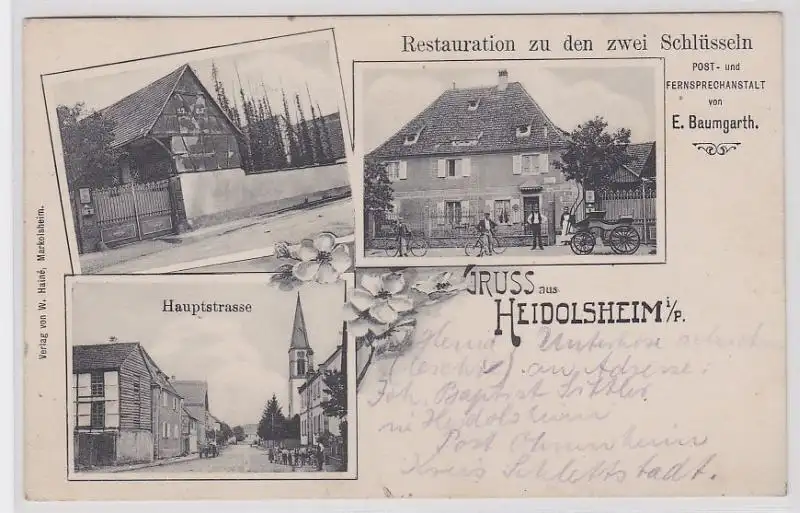 Restauration zu den zwei Schlüsseln
POST- und
FERNSPRECHANSTALT
von
E. Baumgarth.
GRUSS aus
HEIDOLSHEIM i/P.
Hauptstrasse
Verlag von W. Hainé, Markolsheim.
Hemd Unterhose
an Adresse:
Joh. Baptist
in Heidolsheim
Post Ohnenheim
Kreis Schlettstadt.